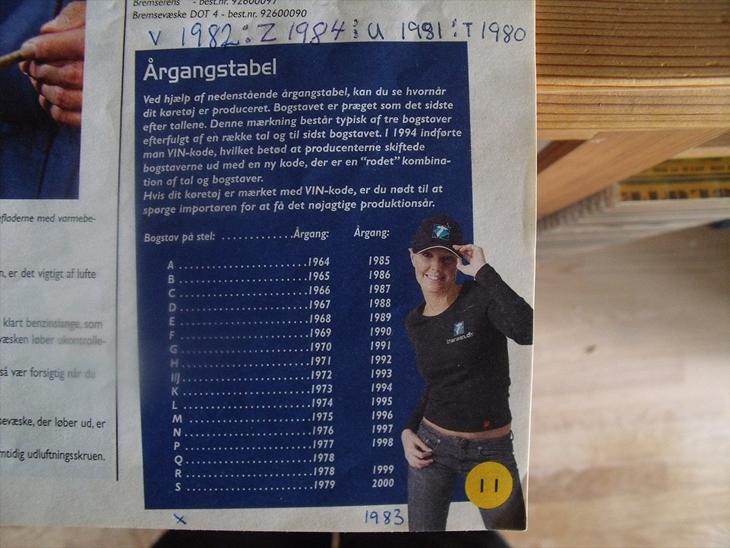 Bremserens - best.nr. 92600097
Bremsevæske DOT 4 - best.nr. 92600090
V 1982 : Z 1984 : U 1981 : T 1980
Årgangstabel
Ved hjælp af nedenstående årgangstabel, kan du se hvornår
dit køretøj er produceret. Bogstavet er præget som det sidste
efter tallene. Denne mærkning består typisk af tre bogstaver
efterfulgt af en række tal og til sidst bogstavet. I 1994 indførte
man VIN-kode, hvilket betød at producenterne skiftede
bogstaverne ud med en ny kode, der er en "rodet" kombina-
tion af tal og bogstaver.
Hvis dit køretøj er mærket med VIN-kode, er du nødt til at
spørge importøren for at få det nøjagtige produktionsår.
Bogstav på stel: ............Årgang: Årgang:
A ........................1964 1985
B ........................1965 1986
C ........................1966 1987
D ........................1967 1988
E ........................1968 1989
F ........................1969 1990
G ........................1970 1991
H ........................1971 1992
I/J ........................1972 1993
K ........................1973 1994
L ........................1974 1995
M ........................1975 1996
N ........................1976 1997
P ........................1977 1998
Q ........................1978
R ........................1978 1999
S ........................1979 2000
x 1983
11
efladerne med varmebe-
n, er det vigtigt af lufte
klart benzinslange, som
væsken løber ukontrolle-
så vær forsigtig når du
sevæske, der løber ud, er
mtidig udluftningsskruen.